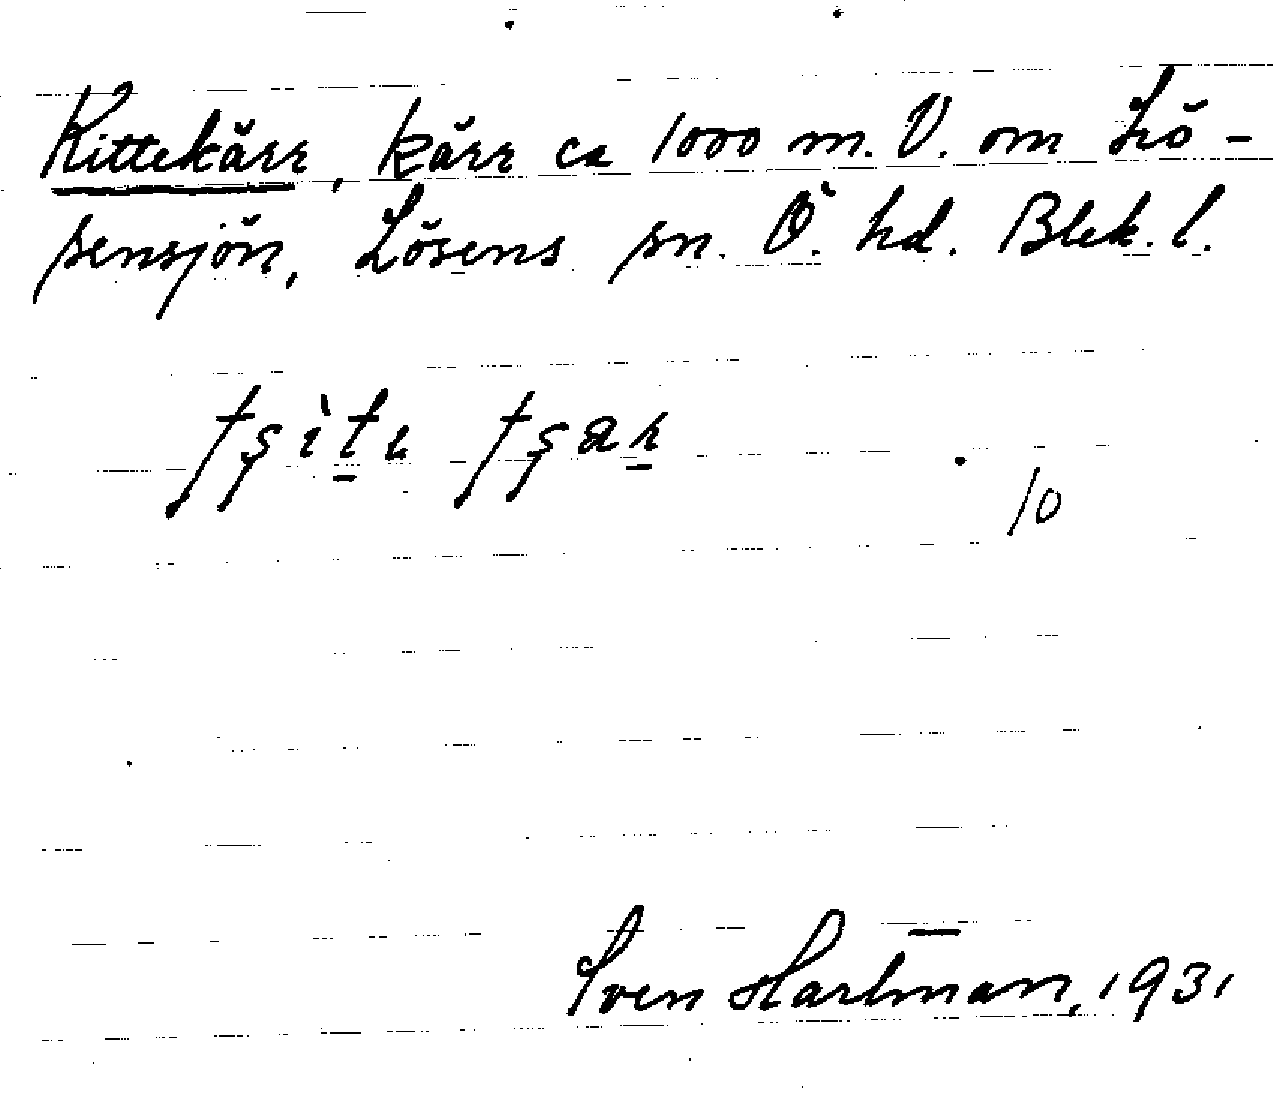 Kittekärr, kärr ca 1000 m. V. om Lö-
sensjön, Lösens sn. Ö. hd. Blek. l.
10
Sven Hartman, 1931